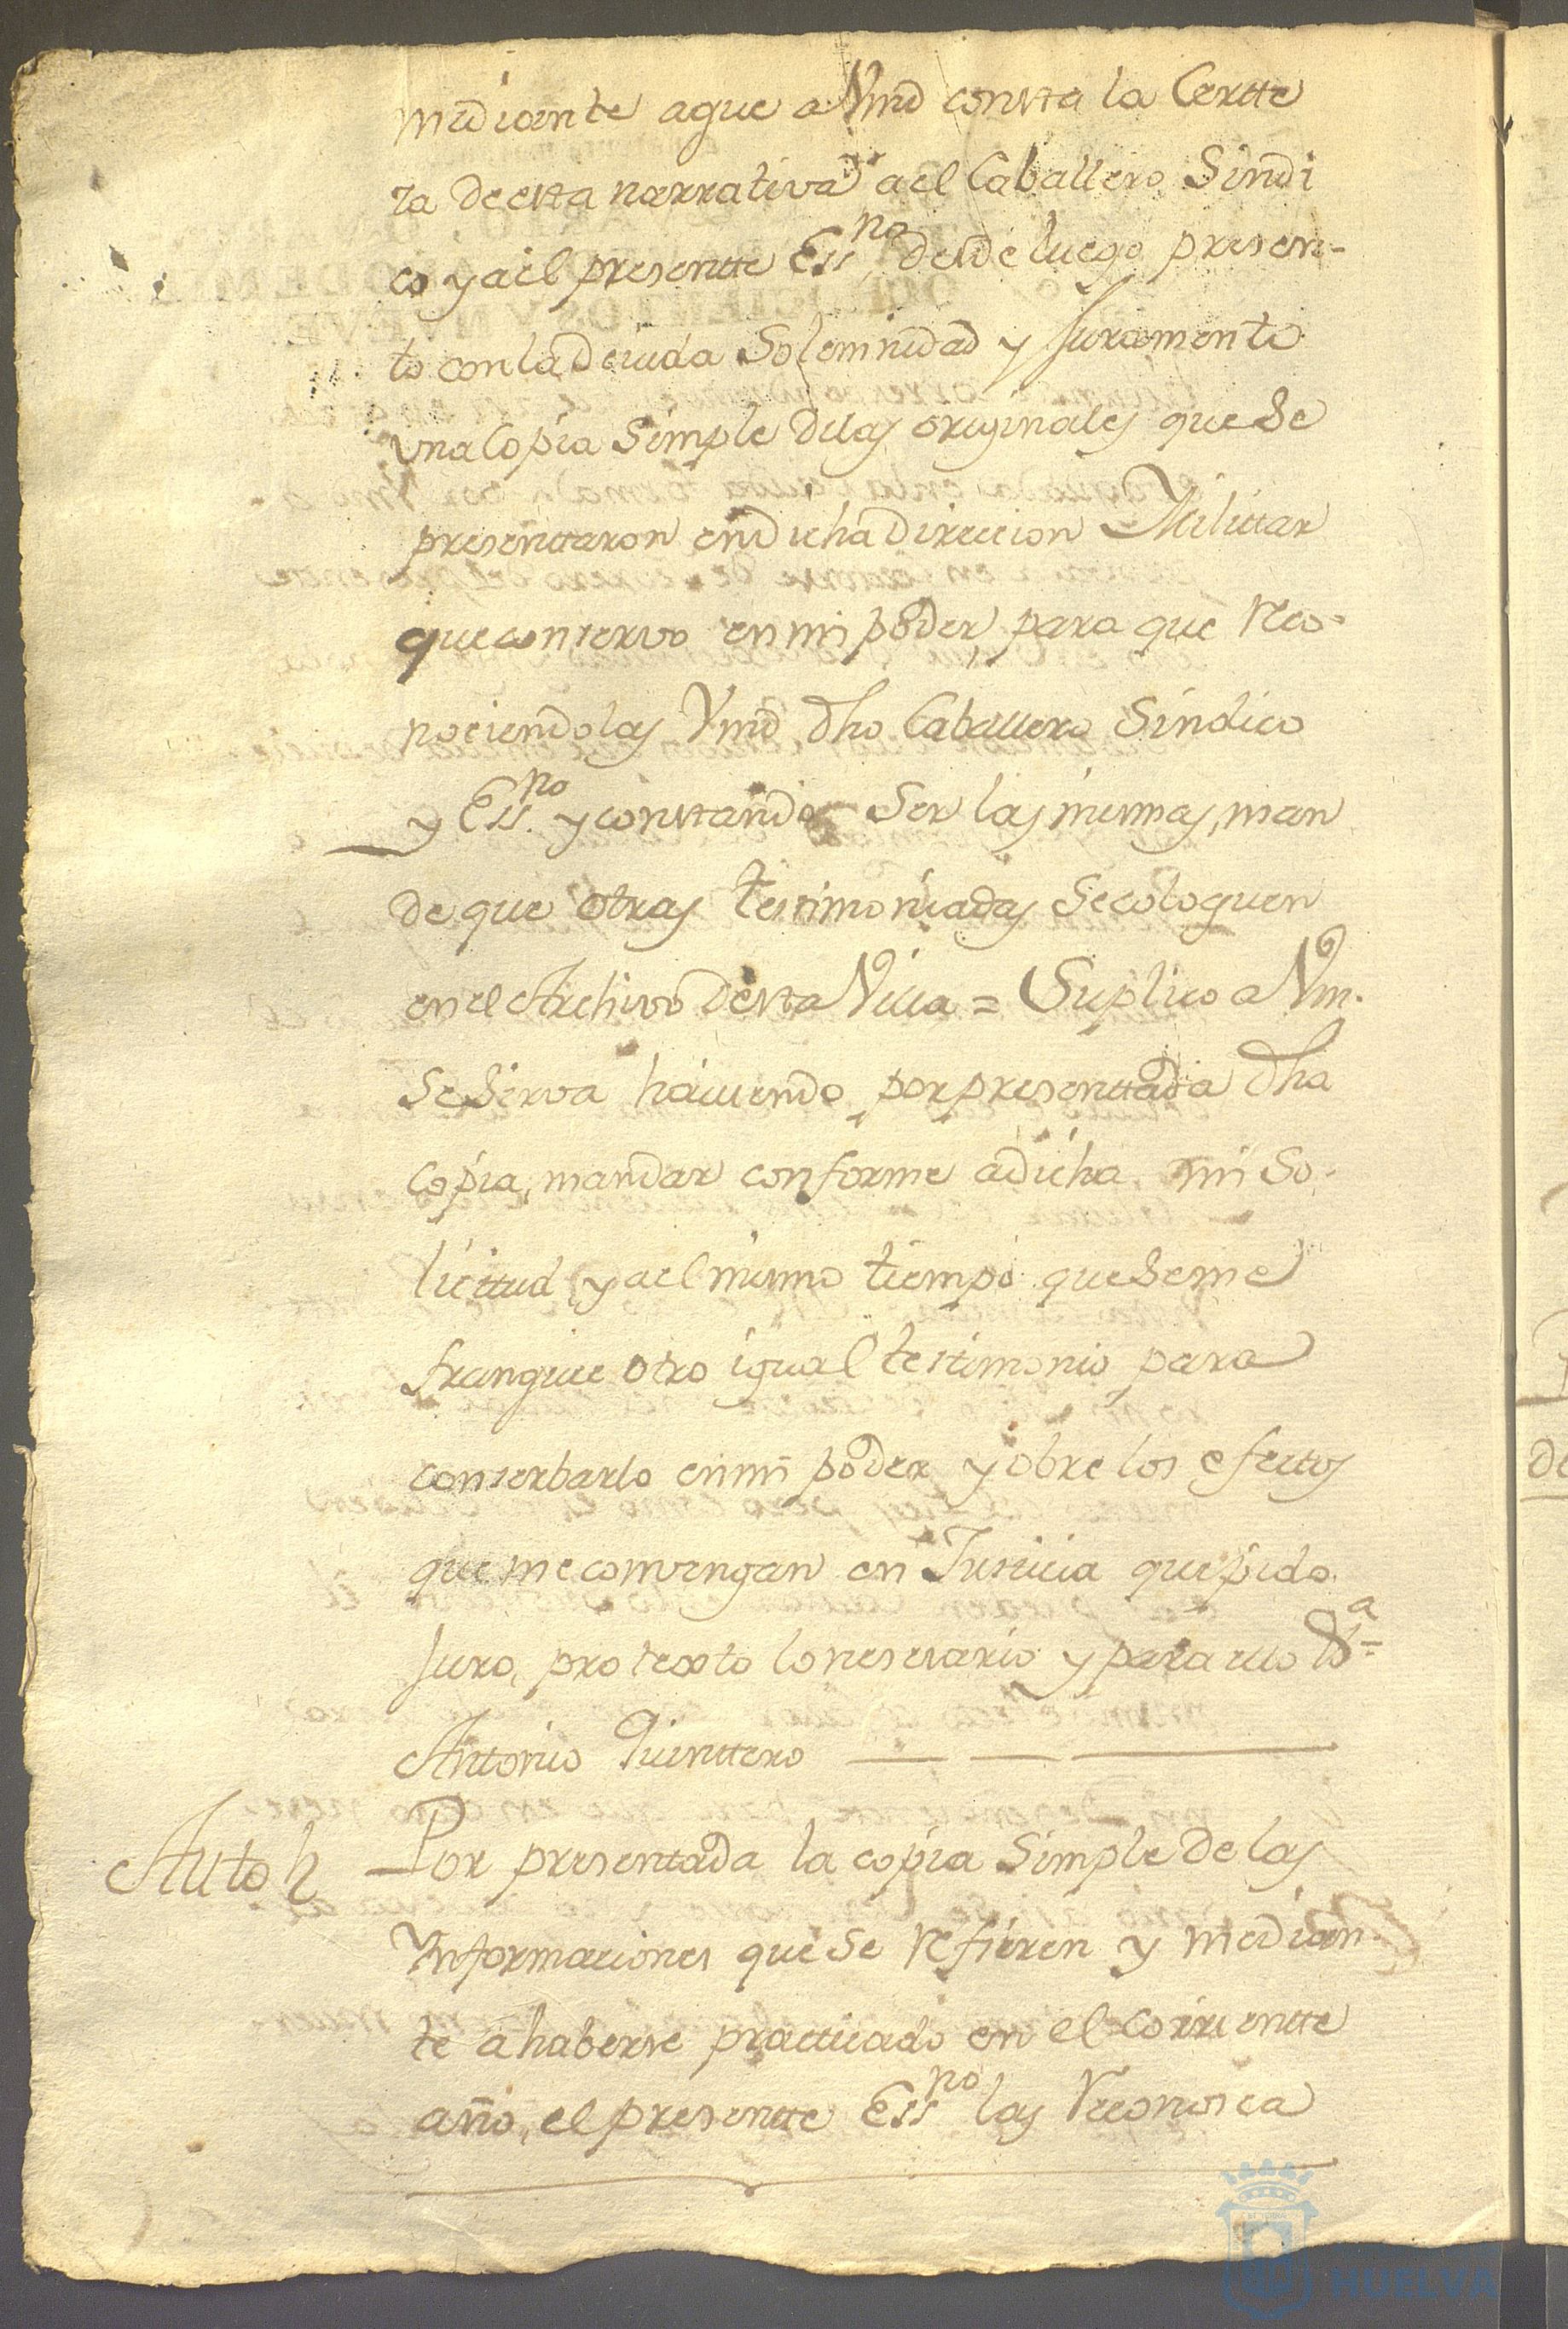 mediante aque a Vmd consta la Certte
za de esta narrativa ael Caballero Sindi
co y ael presentte Essno desde luego presen-
to con la deuida Solemnidad y Juramento
vna Copia Simple delas originales que Se
presenttaron en dicha Direccion Milittar
que conservo en mi poder, para que reco-
nociendolas Vmd dho Caballero Sindico
y Essno y constando Ser las mismas, man
de que otras testimoniadas Se coloquen
en el Archivo desta Villa = Suplico a Vm.
Se Sirva hauiendo por presenttada dha
Copia, mandar conforme a dicha mi So-
licittud y ael mismo tiempo que Se me
franquee otro igual testimonio para
conserbarlo en mi poder y obre los efecttos
que me convengan en Justicia que pido
Juro, protexto lo nesesario y para ello &a=
Antonio Quinttero
Auto
Por presentada la copia Simple de las
Ynformaciones que se refieren y median
te a haberse practticado en el corrientte
año, el presentte Essno las reconosca
HUELVA